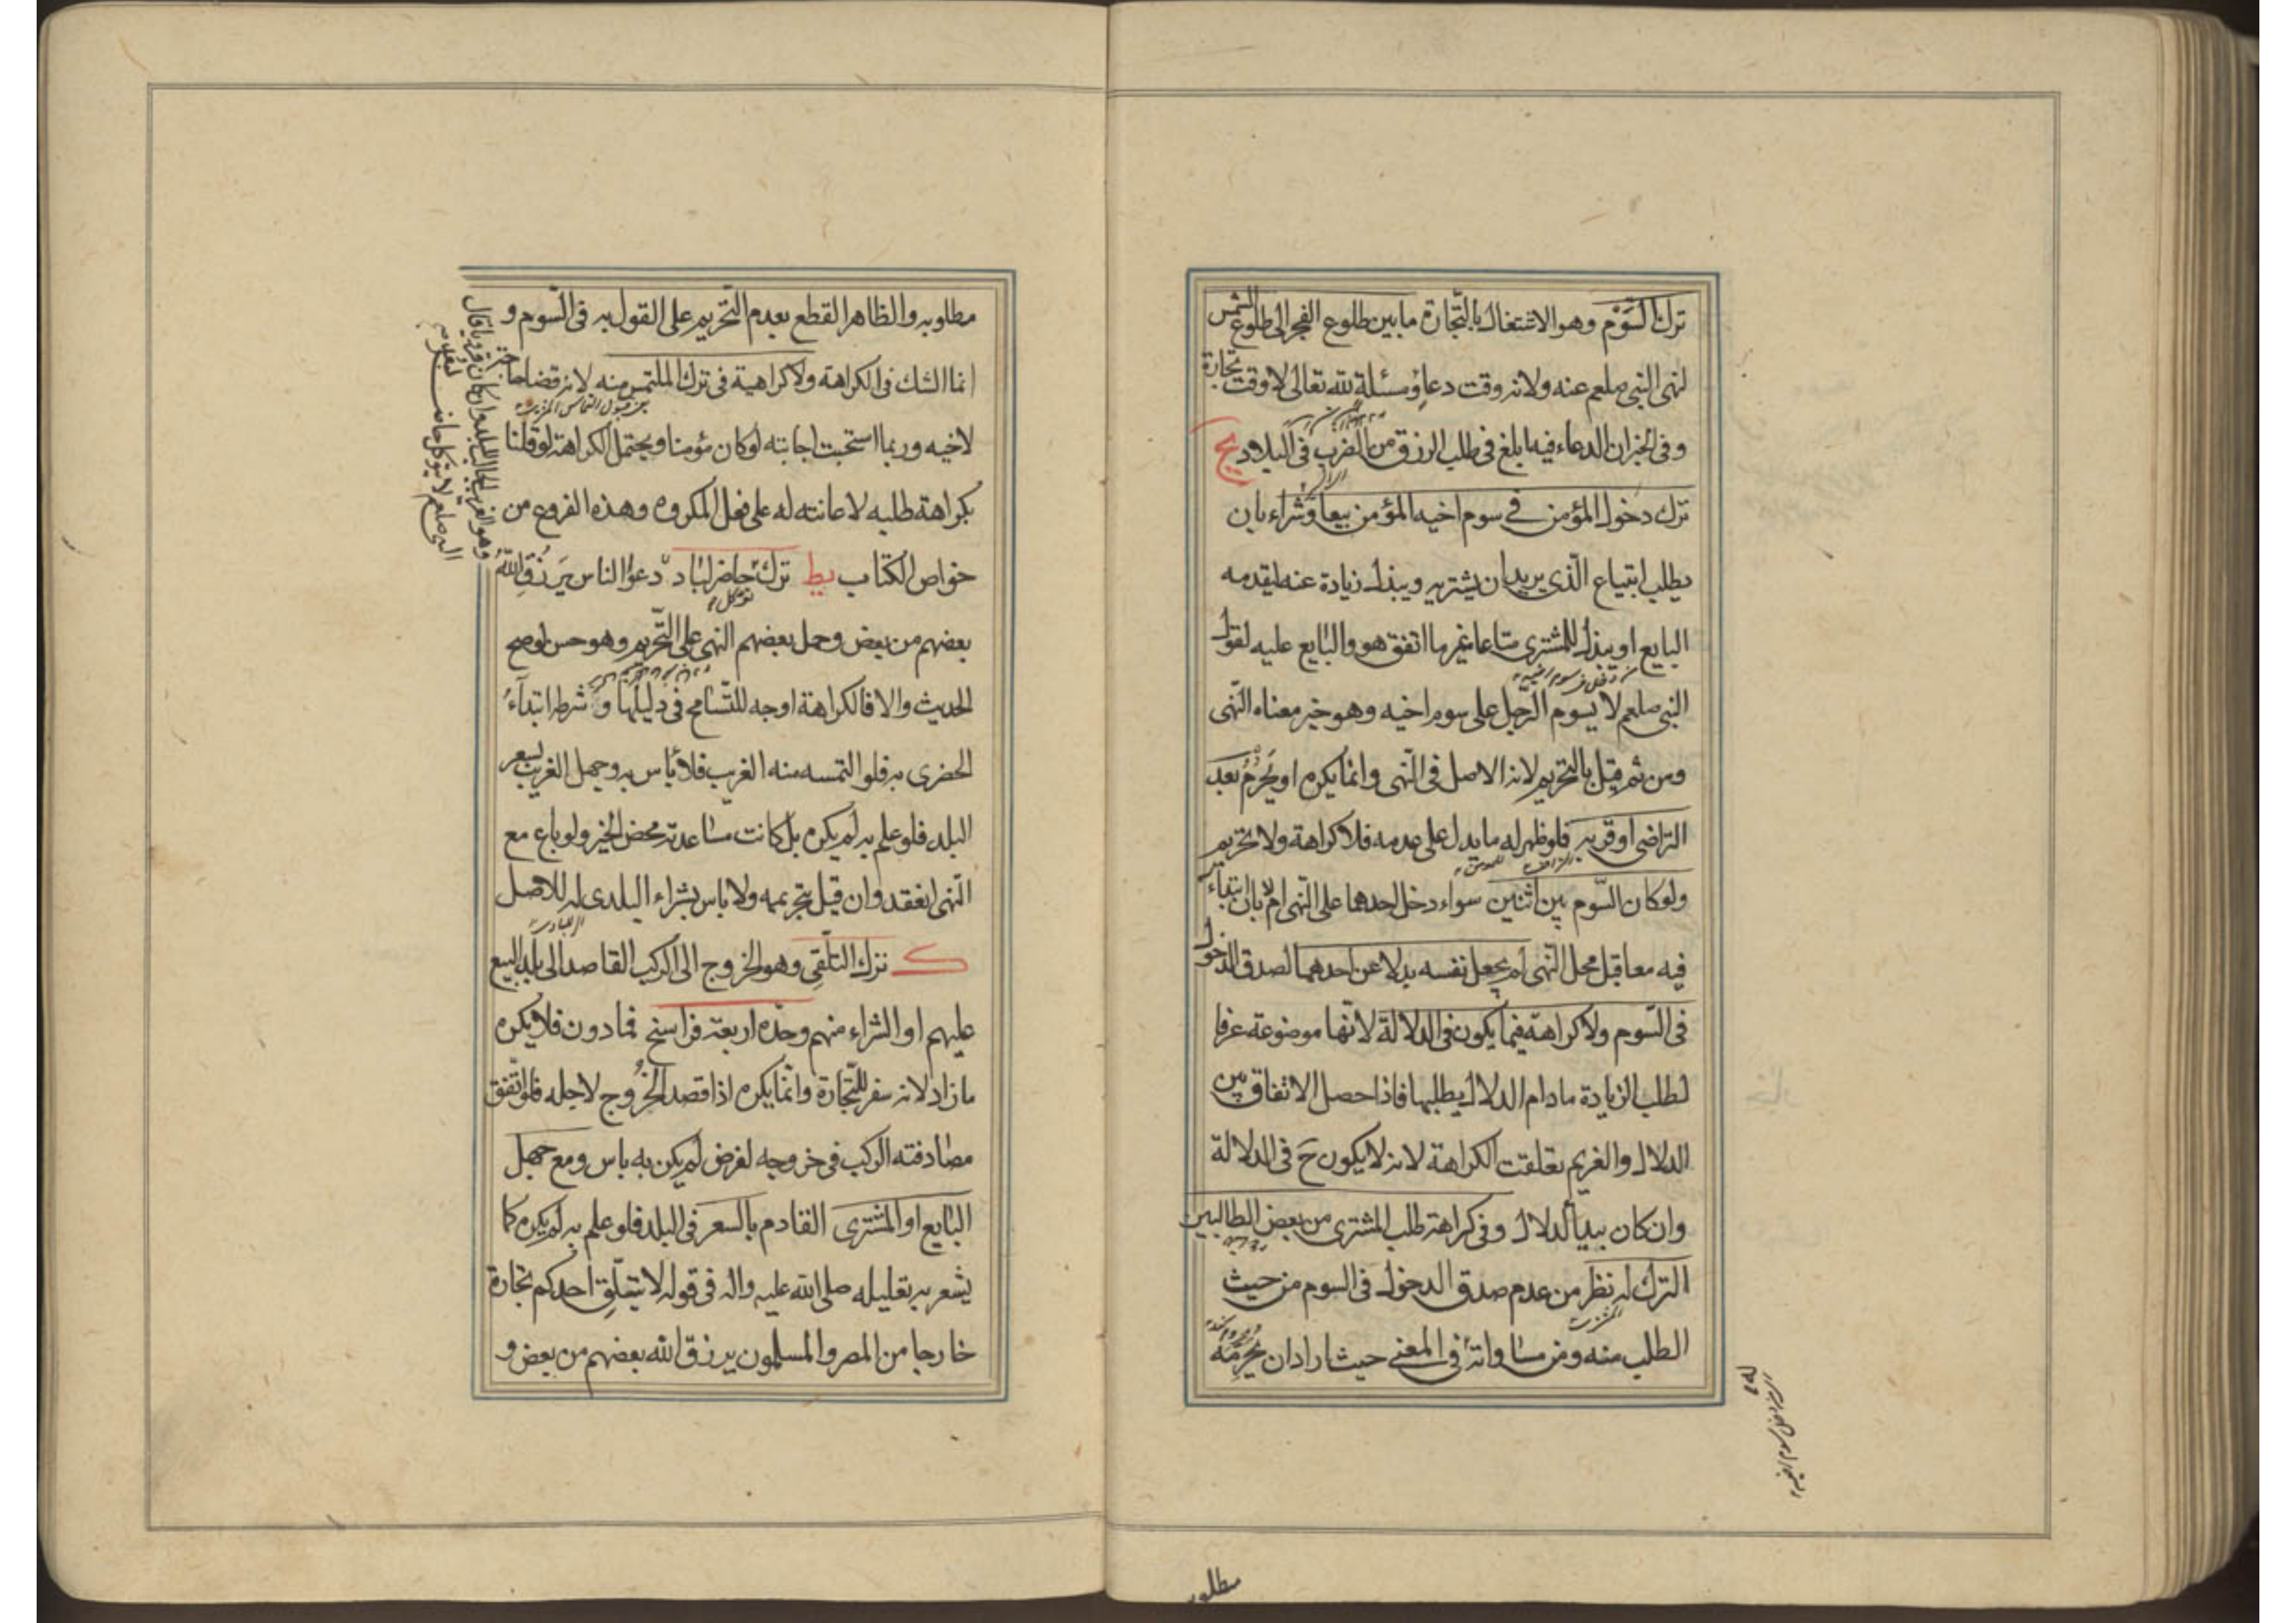 ترك السَّوْم وهو الاشتغال بالتّجارة ما بين طلوع الفجر الى طلوع الشمس
لنهى النبى صلعم عنه ولانه وقت دعاء ومسئلة لله تعالى لا وقت تجارة
وفى الخبر ان الدعاء فيه ابلغ فى طلب الرزق من الضرب فى البلاد يح
ترك دخول المؤمن فى سوم اخيه المؤمن بيعا وشراء بان
يطلب ابتياع الّذى يريد ان يشتريه ويبذل زيادة عنه ليقدمه
البايع او يبذل للمشترى متاعا غير ما اتفق هو والبايع عليه لقول
النبى صلعم لا يسوم الرّجل على سوم اخيه وهو خبر معناه النّهى
ومن ثم قيل بالتحريم لانه الاصل فى النّهى وانما يكره او يَحْرُمُ بعد
التراضى او قربه فلو ظهر له ما يدل على عدمه فلا كراهة ولا تحريم
ولو كان السّوم بين اثنين سواء دخل احدهما على النّهى ام لا بان ابتداء
فيه معا قبل محل النّهى لم يجعل نفسه بدلا عن احدهما لصدق الدخول
فى السّوم ولا كراهة فيما يكون فى الدلالة لانّها موضوعة عرفا
لطلب الزيادة مادام الدلال يطلبها فاذا حصل الاتفاق بين
الدلال والغريم تعلقت الكراهة لانه لا يكون ح فى الدلالة
وان كان بيد الدلال وفى كراهة طلب المشترى من بعض الطالبين
الترك له نظر من عدم صدق الدخول فى السوم من حيث
الطلب منه ومن مساواته فى المعنى حيث اراد ان يحرمه
مطلوبه
مطلوبه والظاهر القطع بعدم التّحريم على القول به فى السّوم و
انما الشك فى الكراهة ولا كراهية فى ترك الملتمس منه لانه قضا حاجة
لاخيه وربما استحبت اجابته لو كان مؤمنا ويحتمل الكراهة لو قلنا
بكراهة طلبه لاعانته له على فعل المكروه وهذه الفروع من
خواص الكتاب يط ترك حاضر لباد دعوا الناس يَرزُقِ اللهُ
بعضهم من بعض وحمل بعضهم النهى على التّحريم وهو حسن لو صح
الحديث والا فالكراهة اوجه للتّسامح فى دليلها وشرطه ابتداءُ
الحضرى به فلو التمسه منه الغريب فلا بأس به وجهل الغريب بسعر
البلد فلو علم به لم يكره بل كانت مساعدته محض الخير ولو باع مع
النّهى انعقد وان قيل بتحريمه ولا باس بشراء البلدى له للاصل
ك ترك التلّقى وهو الخروج الى الركب القاصد الى بلد للبيع
عليهم او الشراء منهم وحدّه اربعة فراسخ فما دون فلا يكره
ما زاد لانه سفر للتّجارة وانّما يكره اذا قصد الخروج لاجله فلو اتّفق
مصادفته الركب فى خروجه لغرض لم يكن به باس ومع جهل
البايع او المشترى القادم بالسعر فى البلد فلو علم به لم يكره كما
يشعر به تعليله صلى الله عليه واله فى قوله لا يتلّق احدكم تجارة
خارجا من المصر والمسلمون يرزق الله بعضهم من بعض و
وهو الغريب الجالب للبلد وان كان قرويا قال
النبى صلعم لا يتوكل حاضر